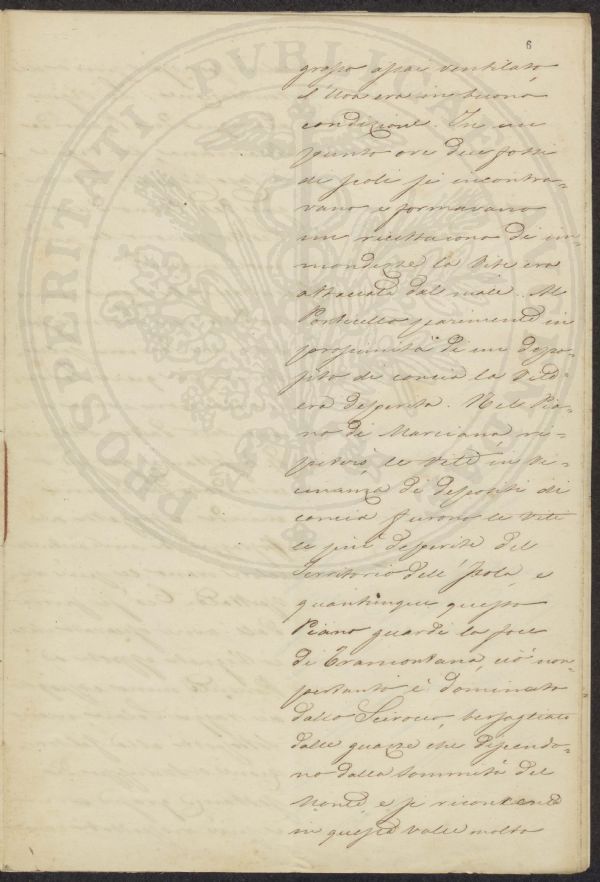 6
grosso assai ventilato
l'Uva era in buona
condizione. In un
punto ove due fossi
di scoli si incontra-
vano e formavano
un ricettacono di im-
mondizze la Vite era
attaccata dal male. Al
Ponticello parimente in
prossimità di un depo-
sito di concia la Vite
era deperita. Nel Pia-
no di Marciana, ri-
peterò, le Viti in vi-
cinanza di depositi di
concia furono le Viti
le più deperite del
Territorio dell'Isola, e
quantunque questo
Piano guardi la foce
di Tramontana, ciò non-
pertanto è dominato
dallo Scirocco, bersagliato
dalle guazze che discendo-
no dalla sommità del
Monte, e si
in questa Valle molto
PROSPERITATI PVBLICAE